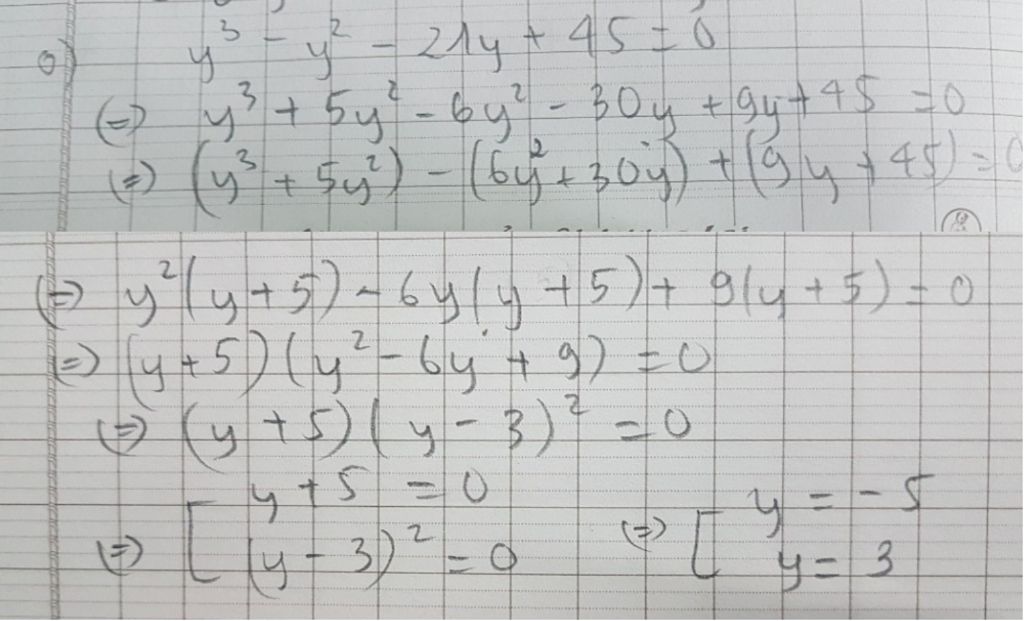 o) y³ - y² - 21y + 45 = 0
(=) y³ + 5y² - 6y² - 30y + 9y + 45 = 0
(=) (y³ + 5y²) - (6y² + 30y) + (9y + 45) = 0
(=) y²(y + 5) - 6y(y + 5) + 9(y + 5) = 0
(=) (y + 5)(y² - 6y + 9) = 0
(=) (y + 5)(y - 3)² = 0
(=) [ y + 5 = 0 (=) [ y = -5
(y - 3)² = 0 y = 3